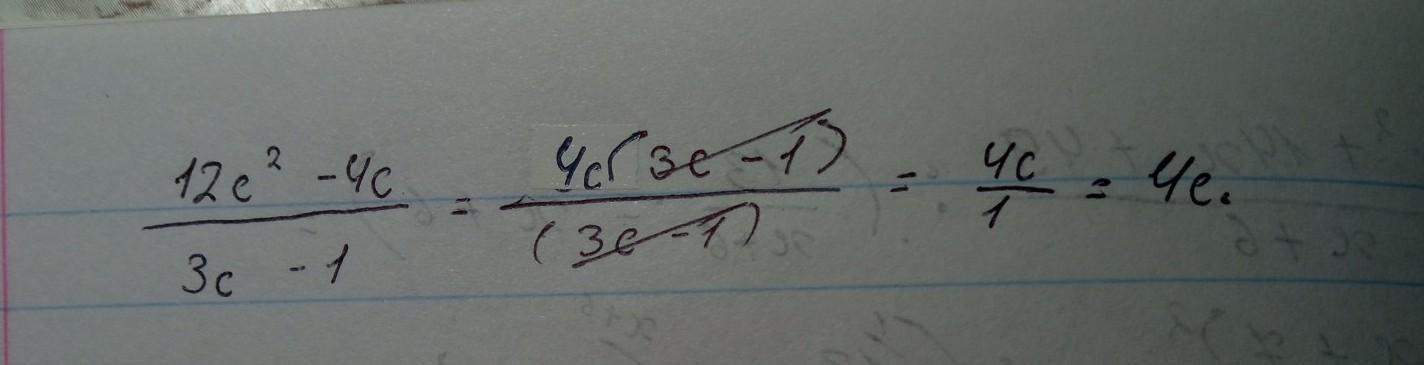 (12c² - 4c)/(3c - 1) = 4c(3c - 1)/(3c - 1) = 4c/1 = 4c.